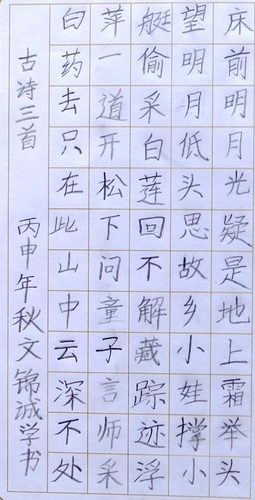 床前明月光疑是地上霜举头
望明月低头思故乡小娃撑小
艇偷采白莲回不解藏踪迹浮
萍一道开松下问童子言师采
白药去只在此山中云深不处
古诗三首 丙申年秋文锦诚学书